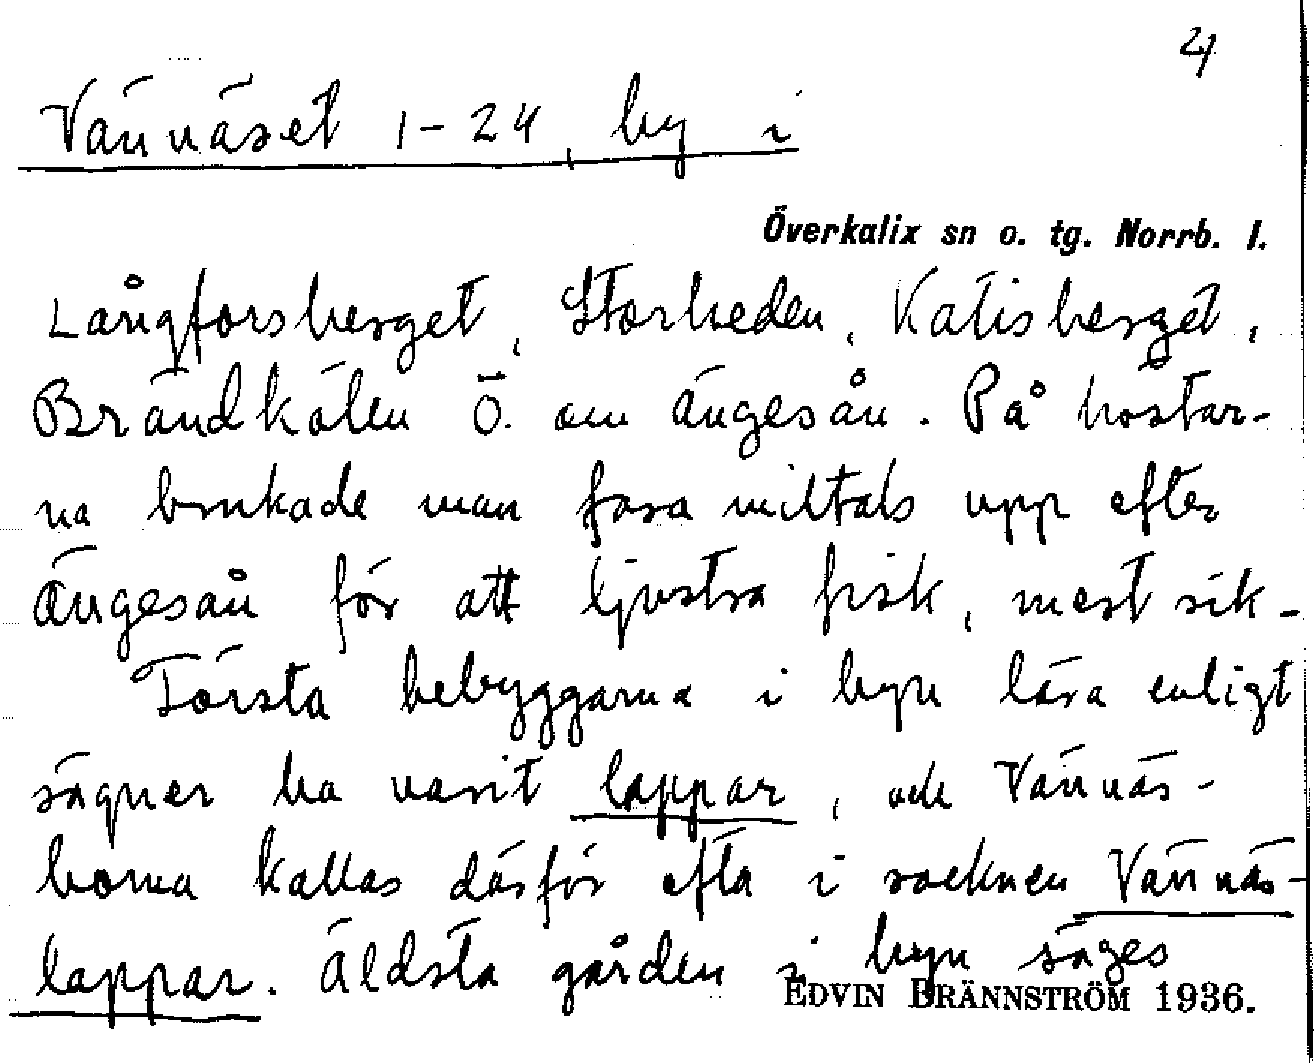 4
Vännäset 1-24, by i
Överkalix sn o. tg. Norrb. l.
Långforsberget, Storheden, Katisberget,
Brändkölen Ö. om Ängesån. På höstar-
na brukade man fara miltals upp efter
Ängesån för att ljustra fisk, mest sik-
Första bebyggarna i byn lära enligt
sägner ha varit lappar, och Vännäs-
borna kallas därför ofta i socknen Vännäs-
lappar. Äldsta gården i byn säges
EDVIN BRÄNNSTRÖM 1936.